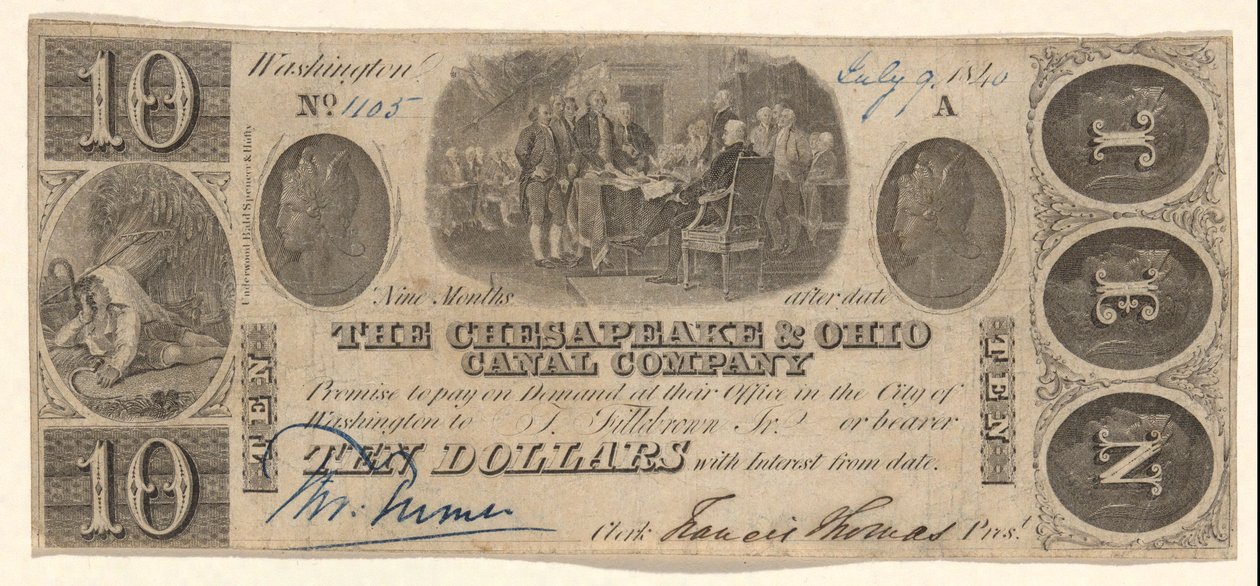 10
Washington
No 1105
July 9, 1840
A
Underwood Bald Spencer & Hufty
Nine Months after date
THE CHESAPEAKE & OHIO
CANAL COMPANY
Promise to pay on Demand at their Office in the City of
Washington to T. Fillebrown Jr. or bearer
TEN DOLLARS with Interest from date.
Clerk Francis Thomas Prest.
10
TEN
TEN
TEN